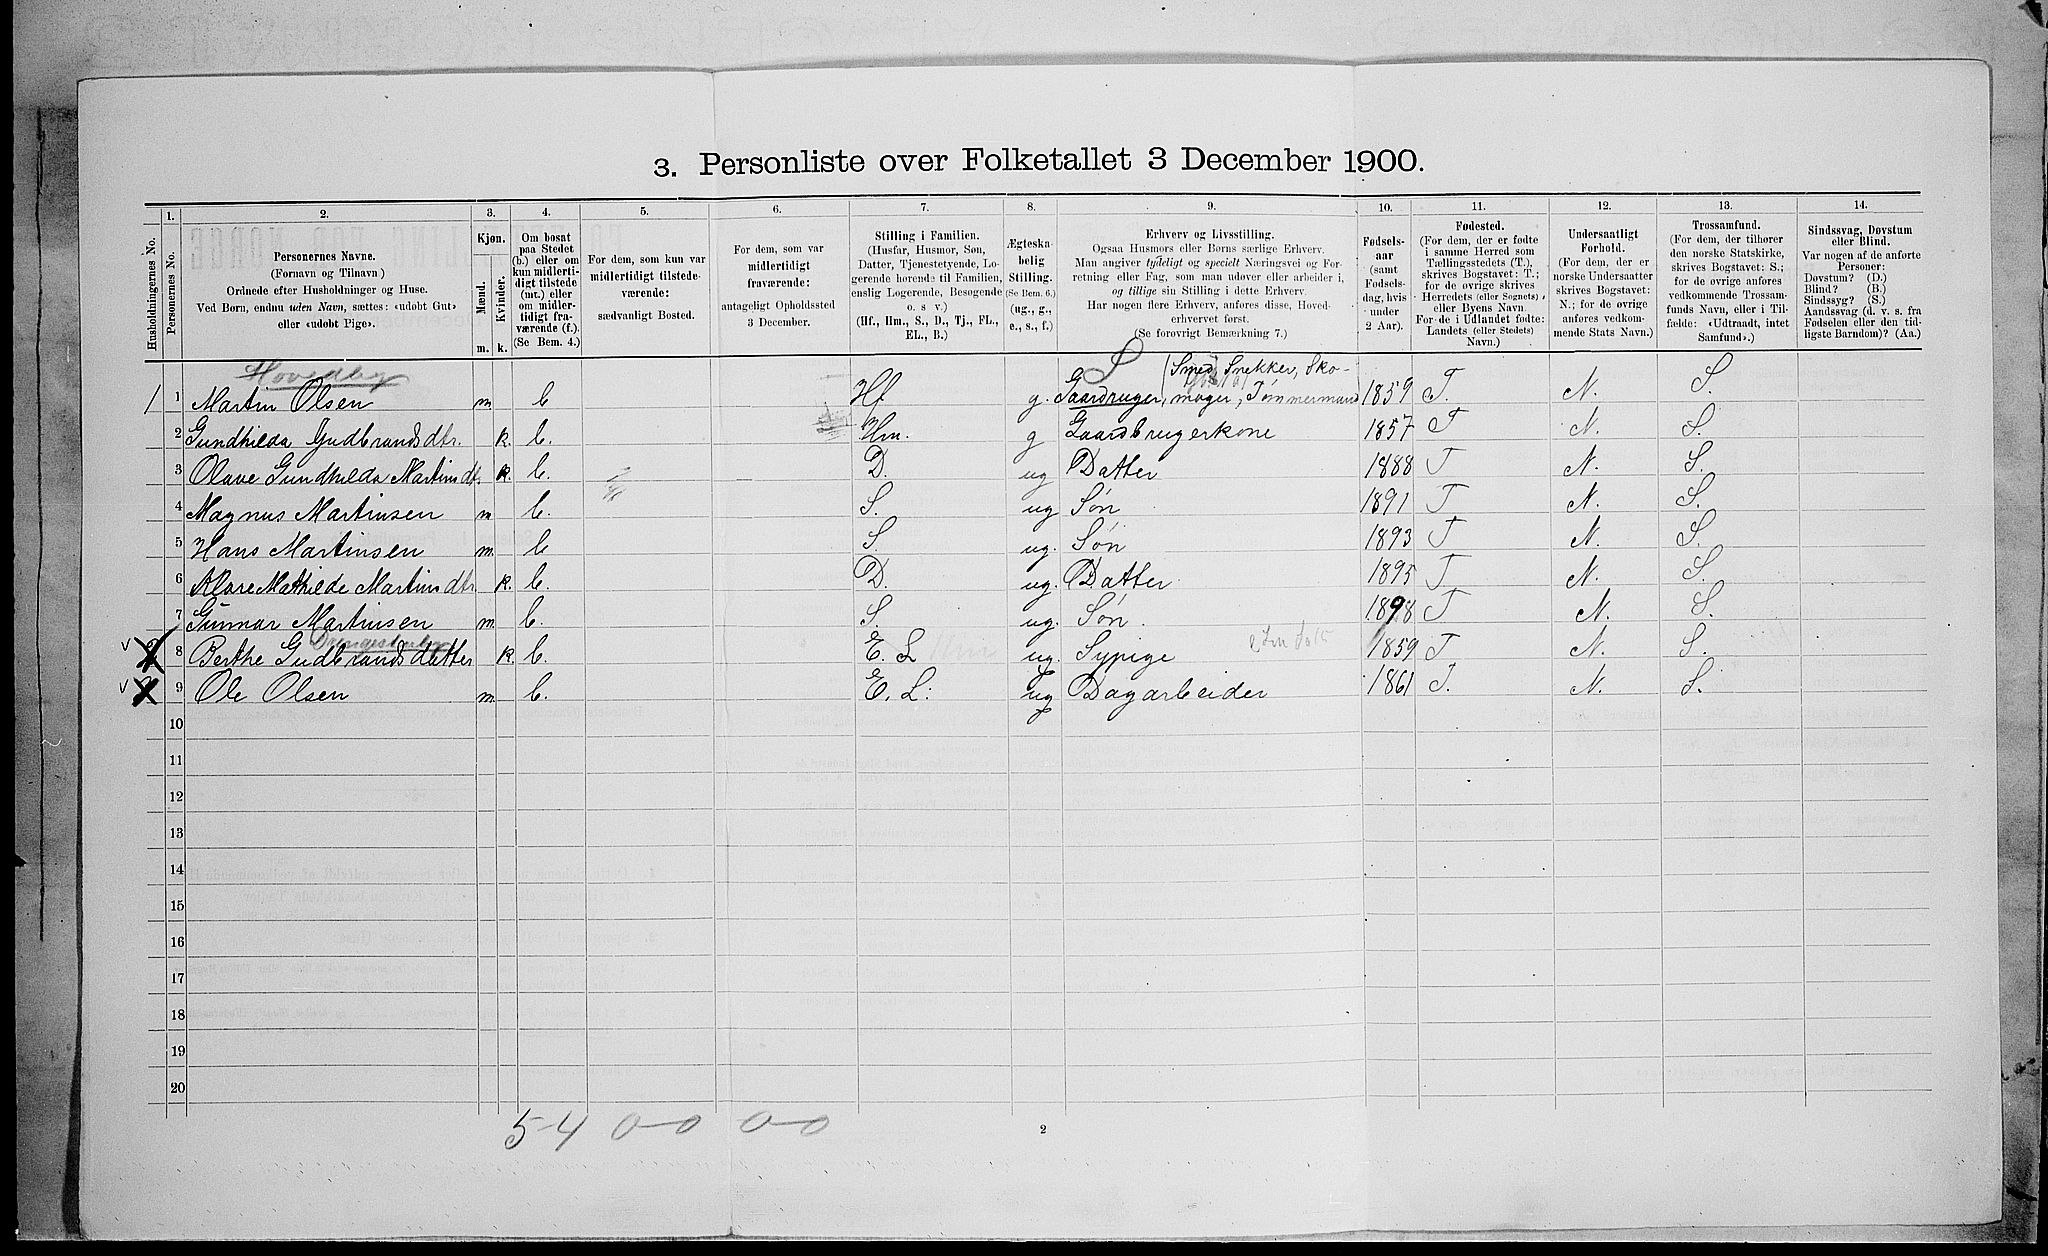 3. Personliste over Folketallet 3 December 1900.
1. 2. 3. 4. 5. 6. 7. 8. 9. 10. 11. 12. 13. 14.
Husholdningernes No.
Personernes No.
Personernes Navne.
(Fornavn og Tilnavn)
Ordnede efter Husholdninger og Huse.
Ved Børn, endnu uden Navn, sættes: «udøbt Gut»
eller «udøbt Pige».
Kjøn.
Mænd.
Kvinder.
m. k.
Om bosat
paa Stedet
(b.) eller om
kun midlerti-
digt tilstede
(mt.) eller
om midler-
tidigt fra-
værende (f.).
(Se Bem. 4.)
For dem, som kun var
midlertidigt tilstede-
værende:
sædvanligt Bosted.
For dem, som var
midlertidigt
fraværende:
antageligt Opholdssted
3 December.
Stilling i Familien.
(Husfar, Husmor, Søn,
Datter, Tjenestetyende, Lo-
gerende hørende til Familien,
enslig Logerende, Besøgende
o. s v.)
(Hf., Hm., S., D., Tj., FL.,
EL., B.)
Ægteska-
belig
Stilling.
(Se Bem. 6.)
(ug., g.,
e., s., f.)
Erhverv og Livsstilling.
Ogsaa Husmors eller Børns særlige Erhverv.
Man angiver tydeligt og specielt Næringsvei og For-
retning eller Fag, som man udøver eller arbeider i,
og tillige sin Stilling i dette Erhverv.
Har nogen flere Erhverv, anføres disse, Hoved-
erhvervet først.
(Se forøvrigt Bemærkning 7.)
Fødsels-
aar
(samt
Fødsels-
dag, hvis
under
2 Aar).
Fødested.
(For dem, der er fødte
i samme Herred som
Tællingsstedets (T.),
skrives Bogstavet: T.;
for de øvrige skrives
Herredets (eller Sognets)
eller Byens Navn.
For de i Udlandet fødte:
Landets (eller Stedets)
Navn.)
Undersaatligt
Forhold.
(For dem, der er
norske Undersaatter
skrives Bogstavet:
N.; for de øvrige
anføres vedkom-
mende Stats Navn.)
Trossamfund.
(For dem, der tilhører
den norske Statskirke,
skrives Bogstavet: S.;
for de øvrige anføres
vedkommende Trossam-
funds Navn, eller i Til-
fælde: «Udtraadt, intet
Samfund».)
Sindssvag, Døvstum
eller Blind.
Var nogen af de anførte
Personer:
Døvstum? (D.)
Blind? (B.)
Sindssyg? (S.)
Aandssvag (d. v. s. fra
Fødselen eller den tid-
ligste Barndom)? (Aa.)
Hovedbyg
Smed, Snekker, Sko-
1 1 Martin Olsen m b Hf g. Gaardruger, mager, Tømmermand 1859 T. N. S.
2 Gundhilda Gudbrandsdtr. k. b. Hm. g Gaardbrugerkone 1857 T N. S.
3 Olave Gundhilda Martinsdt. k. b. D. ug Datter 1888 T N. S.
4 Magnus Martinsen m b. S. ug Søn 1891 T N. S.
5 Hans Martinsen m. b S. ug. Søn 1893 T N. S.
6 Klare Mathilde Martinsdtr. k. b. D. ug. Datter 1895 T N. S.
7 Gunnar Martinsen m. b. S. ug. Søn. 1898 T N. S.
8 Berthe Gudbrandsdatter k. b. E. L ug. Sypige 1859 T N. S.
9 Ole Olsen m b. E. L. ug Dagarbeider 1861 T. N. S.
10
11
12
13
14
15
16
17
18
19
20
5-4 0-0 0-0
2